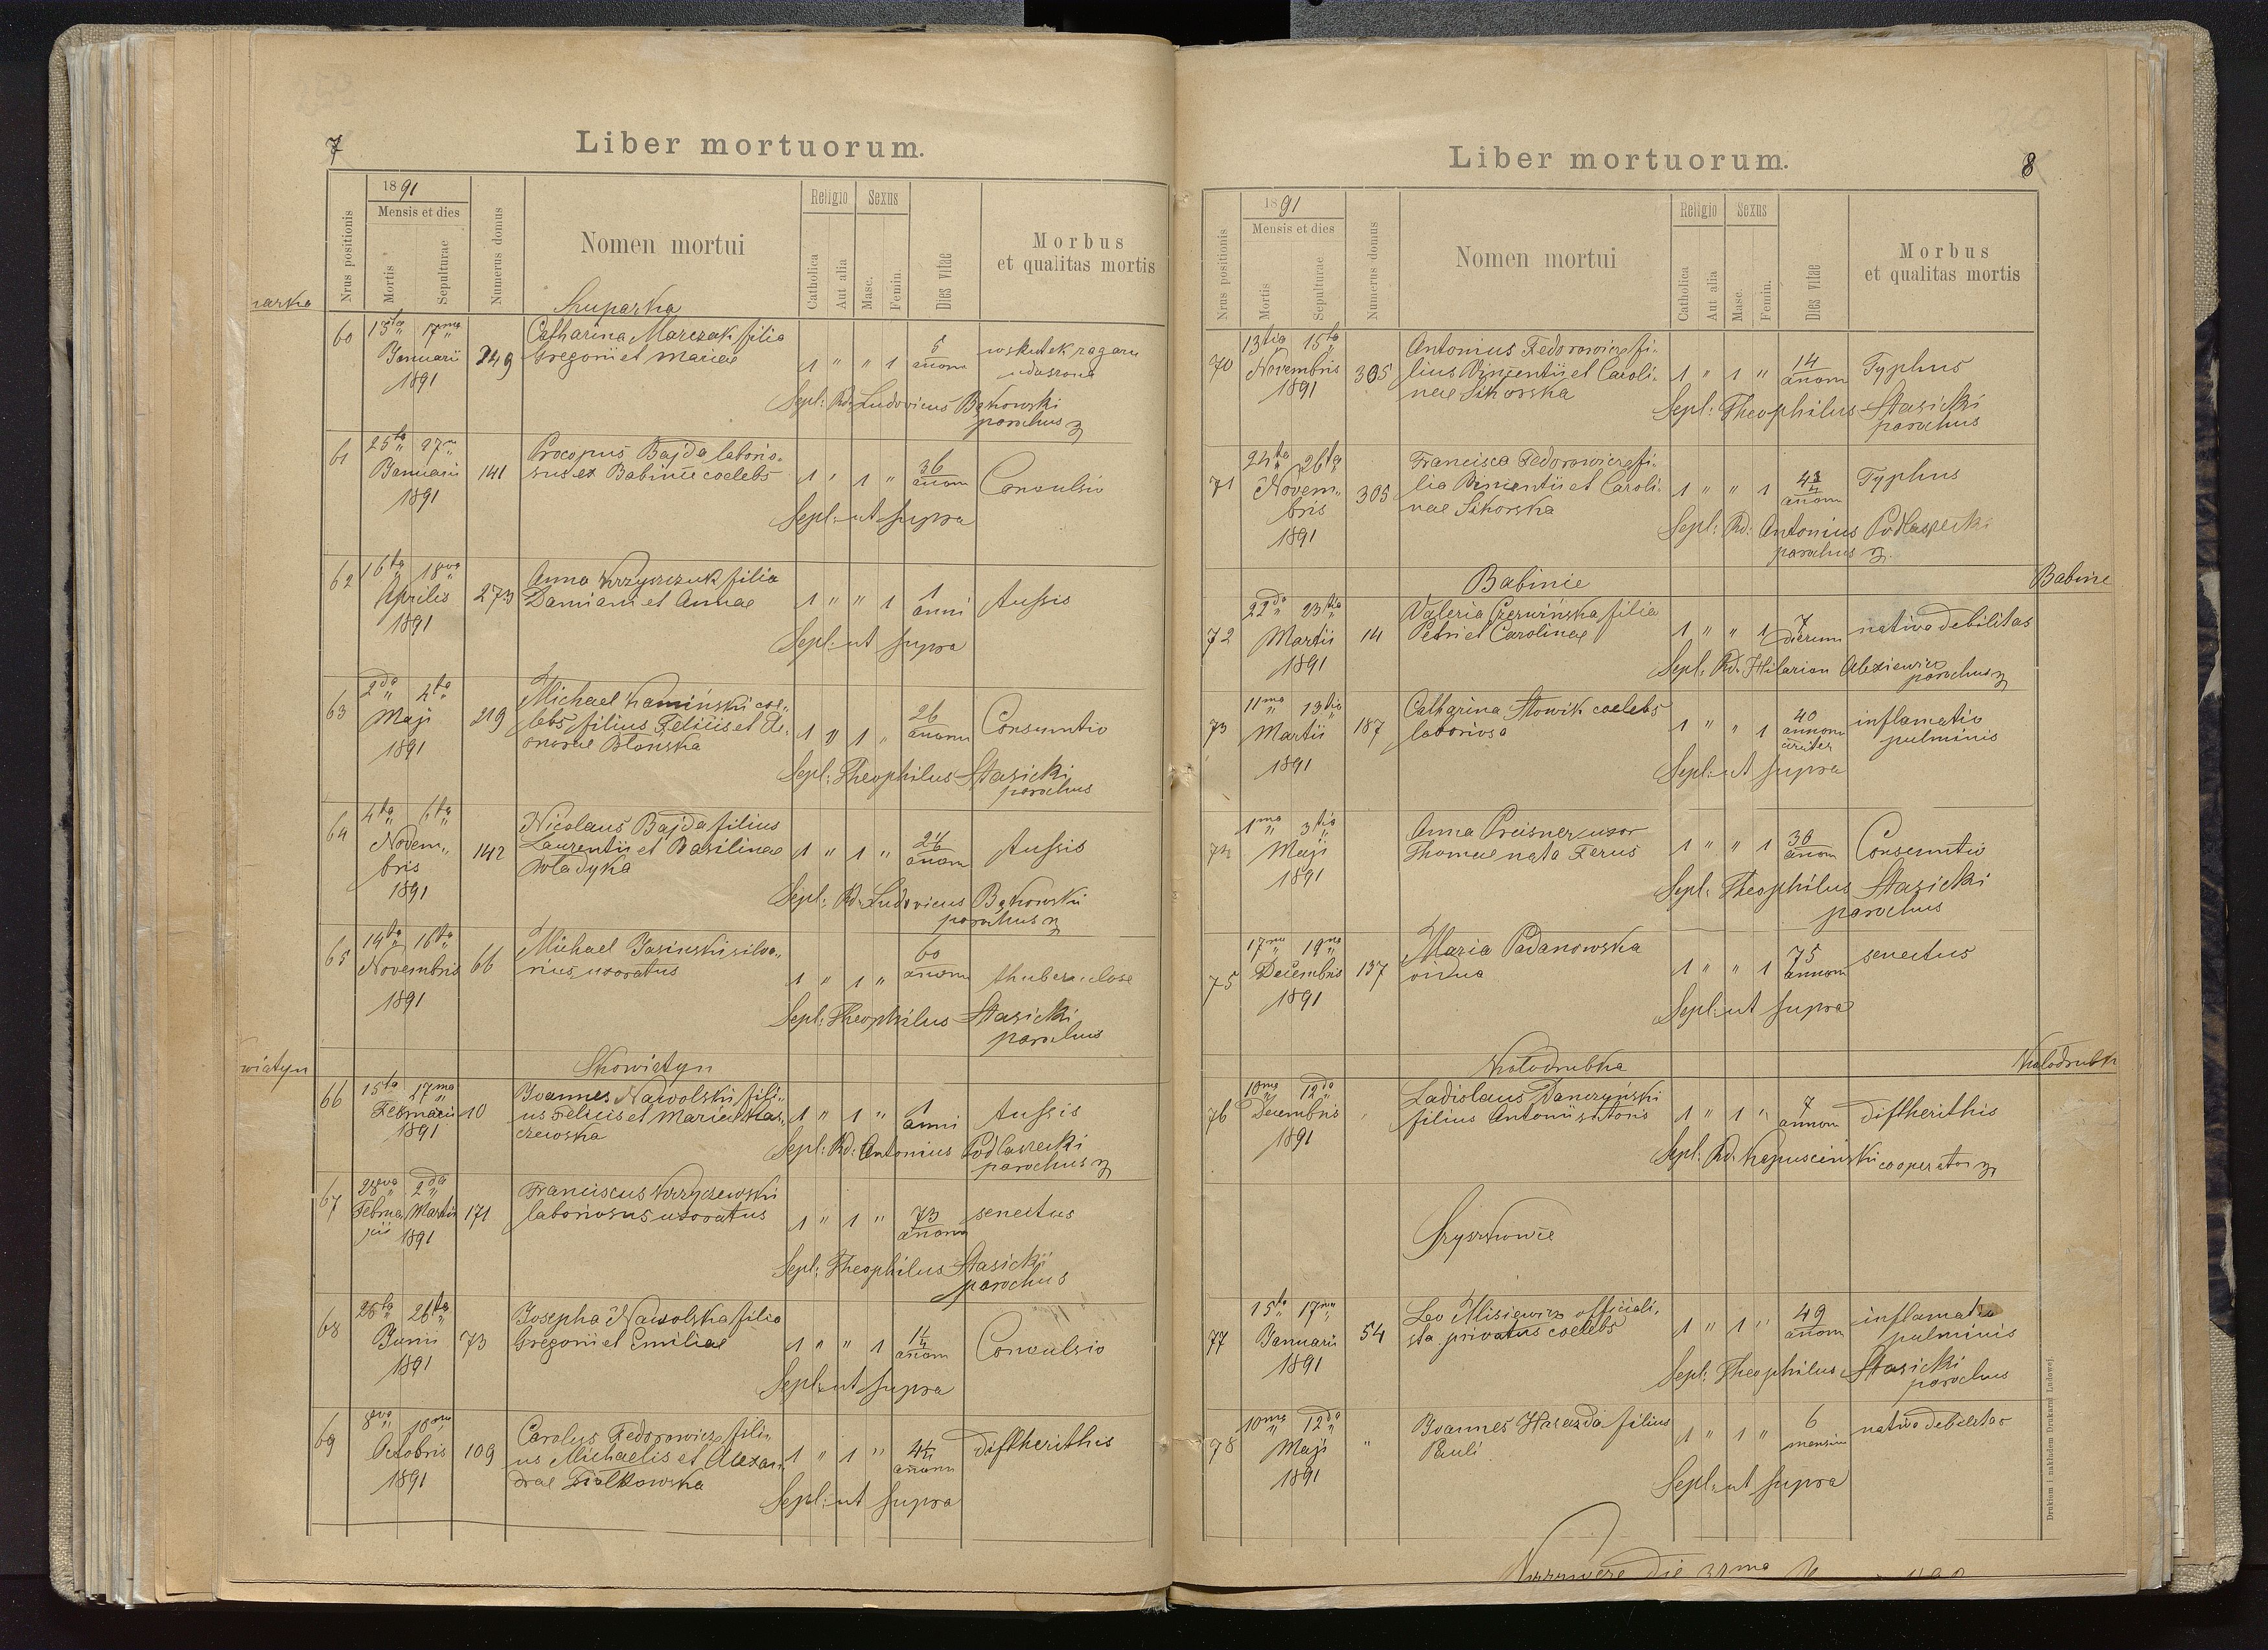 7
Liber mortuorum.
1891
Mensis et dies
Nrus positionis
Mortis
Sepulturae
Numerus domus
Nomen mortui
Religio
Sexus
Catholica
Aut alia
Masc.
Femin.
Dies vitae
Morbus
et qualitas mortis
Szuparka
60 15ta 17ma Januarii 1891 249
Catharina Marczak filia
Gregorii et Mariae
1 " " 1 5 annorum
wskutek
Sepl: Rd. Ludovicus Bąkowski
parochus
61 25ta 27ma Januarii 1891 141
Procopus Bajda laborio-
sus ex Babinie coelebs
1 " 1 " 36 annorum Convulsio
Sepl: ut supra
62 16ta 18va Aprilis 1891 273
Anna Krzyszczuk filia
Damiani et Annae
1 " " 1 1 anni tussis
Sepl: ut supra
63 2da 4ta Maji 1891 219
Michael Kamiński coe-
lebs filius Feliciis et Ele-
onorae Błońska
1 " 1 " 26 annorum Consumtio
Sepl: Theophilus Stasicki
parochus
64 4ta 6ta Novem-
bris 1891 142
Nicolaus Bajda filius
Laurentii et Basilinae
Woładyka
1 " 1 " annorum tussis
Sepl: Rd. Ludovicus Bąkowski
parochus
65 14ta 16ta Novembris 1891 66
Michael Jasiński silva-
rius uxoratus
1 " 1 " 60 annorum thuberculose
Sepl: Theophilus Stasicki
parochus
wiatyn
Skowiatyn
66 15ta 17ma Februarii 1891 10
Joannes Nawolski fili-
us Felicis et Mariae
czewska
1 " 1 " 1 anni tussis
Sepl: Rd: Antonius Podlasecki
parochus
67 28va Februa-
rii 2da Martii 1891 171
Franciscus Krzyczewski
laboriosus uxoratus
1 " 1 " 73 annorum senectus
Sepl: Theophilus Stasicki
parochus
68 25ta 26ta Junii 1891 73
Josepha Nawolska filia
Gregorii et Emiliae
1 " " 1 annorum Convulsio
Sepl: ut supra
69 8va 10ma Octobris 1891 109
Carolus Fedorowicz fili-
us Michaelis et Alexan-
drae Fiałkowska
1 " 1 " annorum diftherithis
Sepl: ut supra
8
Liber mortuorum.
1891
Mensis et dies
Nrus positionis
Mortis
Sepulturae
Numerus domus
Nomen mortui
Religio
Sexus
Catholica
Aut alia
Masc.
Femin.
Dies vitae
Morbus
et qualitas mortis
70 13tia 15ta Novembris 1891 305
Antonius Fedorowicz fi-
lius Vincentii et Caroli-
nae Sikorska
1 " 1 " 14 annorum Typhus
Sepl: Theophilus Stasicki
parochus
71 24ta 26ta Novem-
bris 1891 305
Francisca Fedorowicz fi-
lia Vincentii et Caroli-
nae Sikorska
1 " " 1 annorum Typhus
Sepl: Rd: Antonius Podlasecki
parochus
Babinie
Babine
72 22da 23tia Martii 1891 14
Valeria Czerwińska filia
Petri et Carolinae
1 " " 1 7 dierum nativa debilitas
Sepl: Rd. Hilarion Alexiewicz
parochus
73 11ma 13tia Martii 1891 187
Catharina Słowik coelebs
laboriosa
1 " " 1 40 annorum circiter
inflamatio
pulminis
Sepl: ut supra
74 1ma 3tia Maji 1891
Anna Preisner uxor
Thomae nata Ferus
1 " " 1 annorum Consumtio
Sepl: Theophilus Stasicki
parochus
75 17ma 19na Decembris 1891 137
Maria Padanowska
vidua
1 " " 1 75 annorum senectus
Sepl: ut supra
Kołodrubka
76 10ma 12da Decembris 1891
Ladislaus Danczyński
filius Antonii sutoris
1 " 1 " 7 annorum diftherithis
Sepl: Rd. Kapuściński cooperator
Szyszkowce
77 15ta 17ma Januarii 1891 54
Leo Misiewicz officiali-
sta privatus coelebs
1 " 1 " 49 annorum
inflamatio
pulminis
Sepl: Theophilus Stasicki
parochus
78 10ma 12da Maji 1891 "
Joannes Harazda filius
Pauli
1 " 1 " 6 mensium nativa debilitas
Sepl: ut supra
Drukiem i nakładem Drukarni Ludowej.
die 31ma